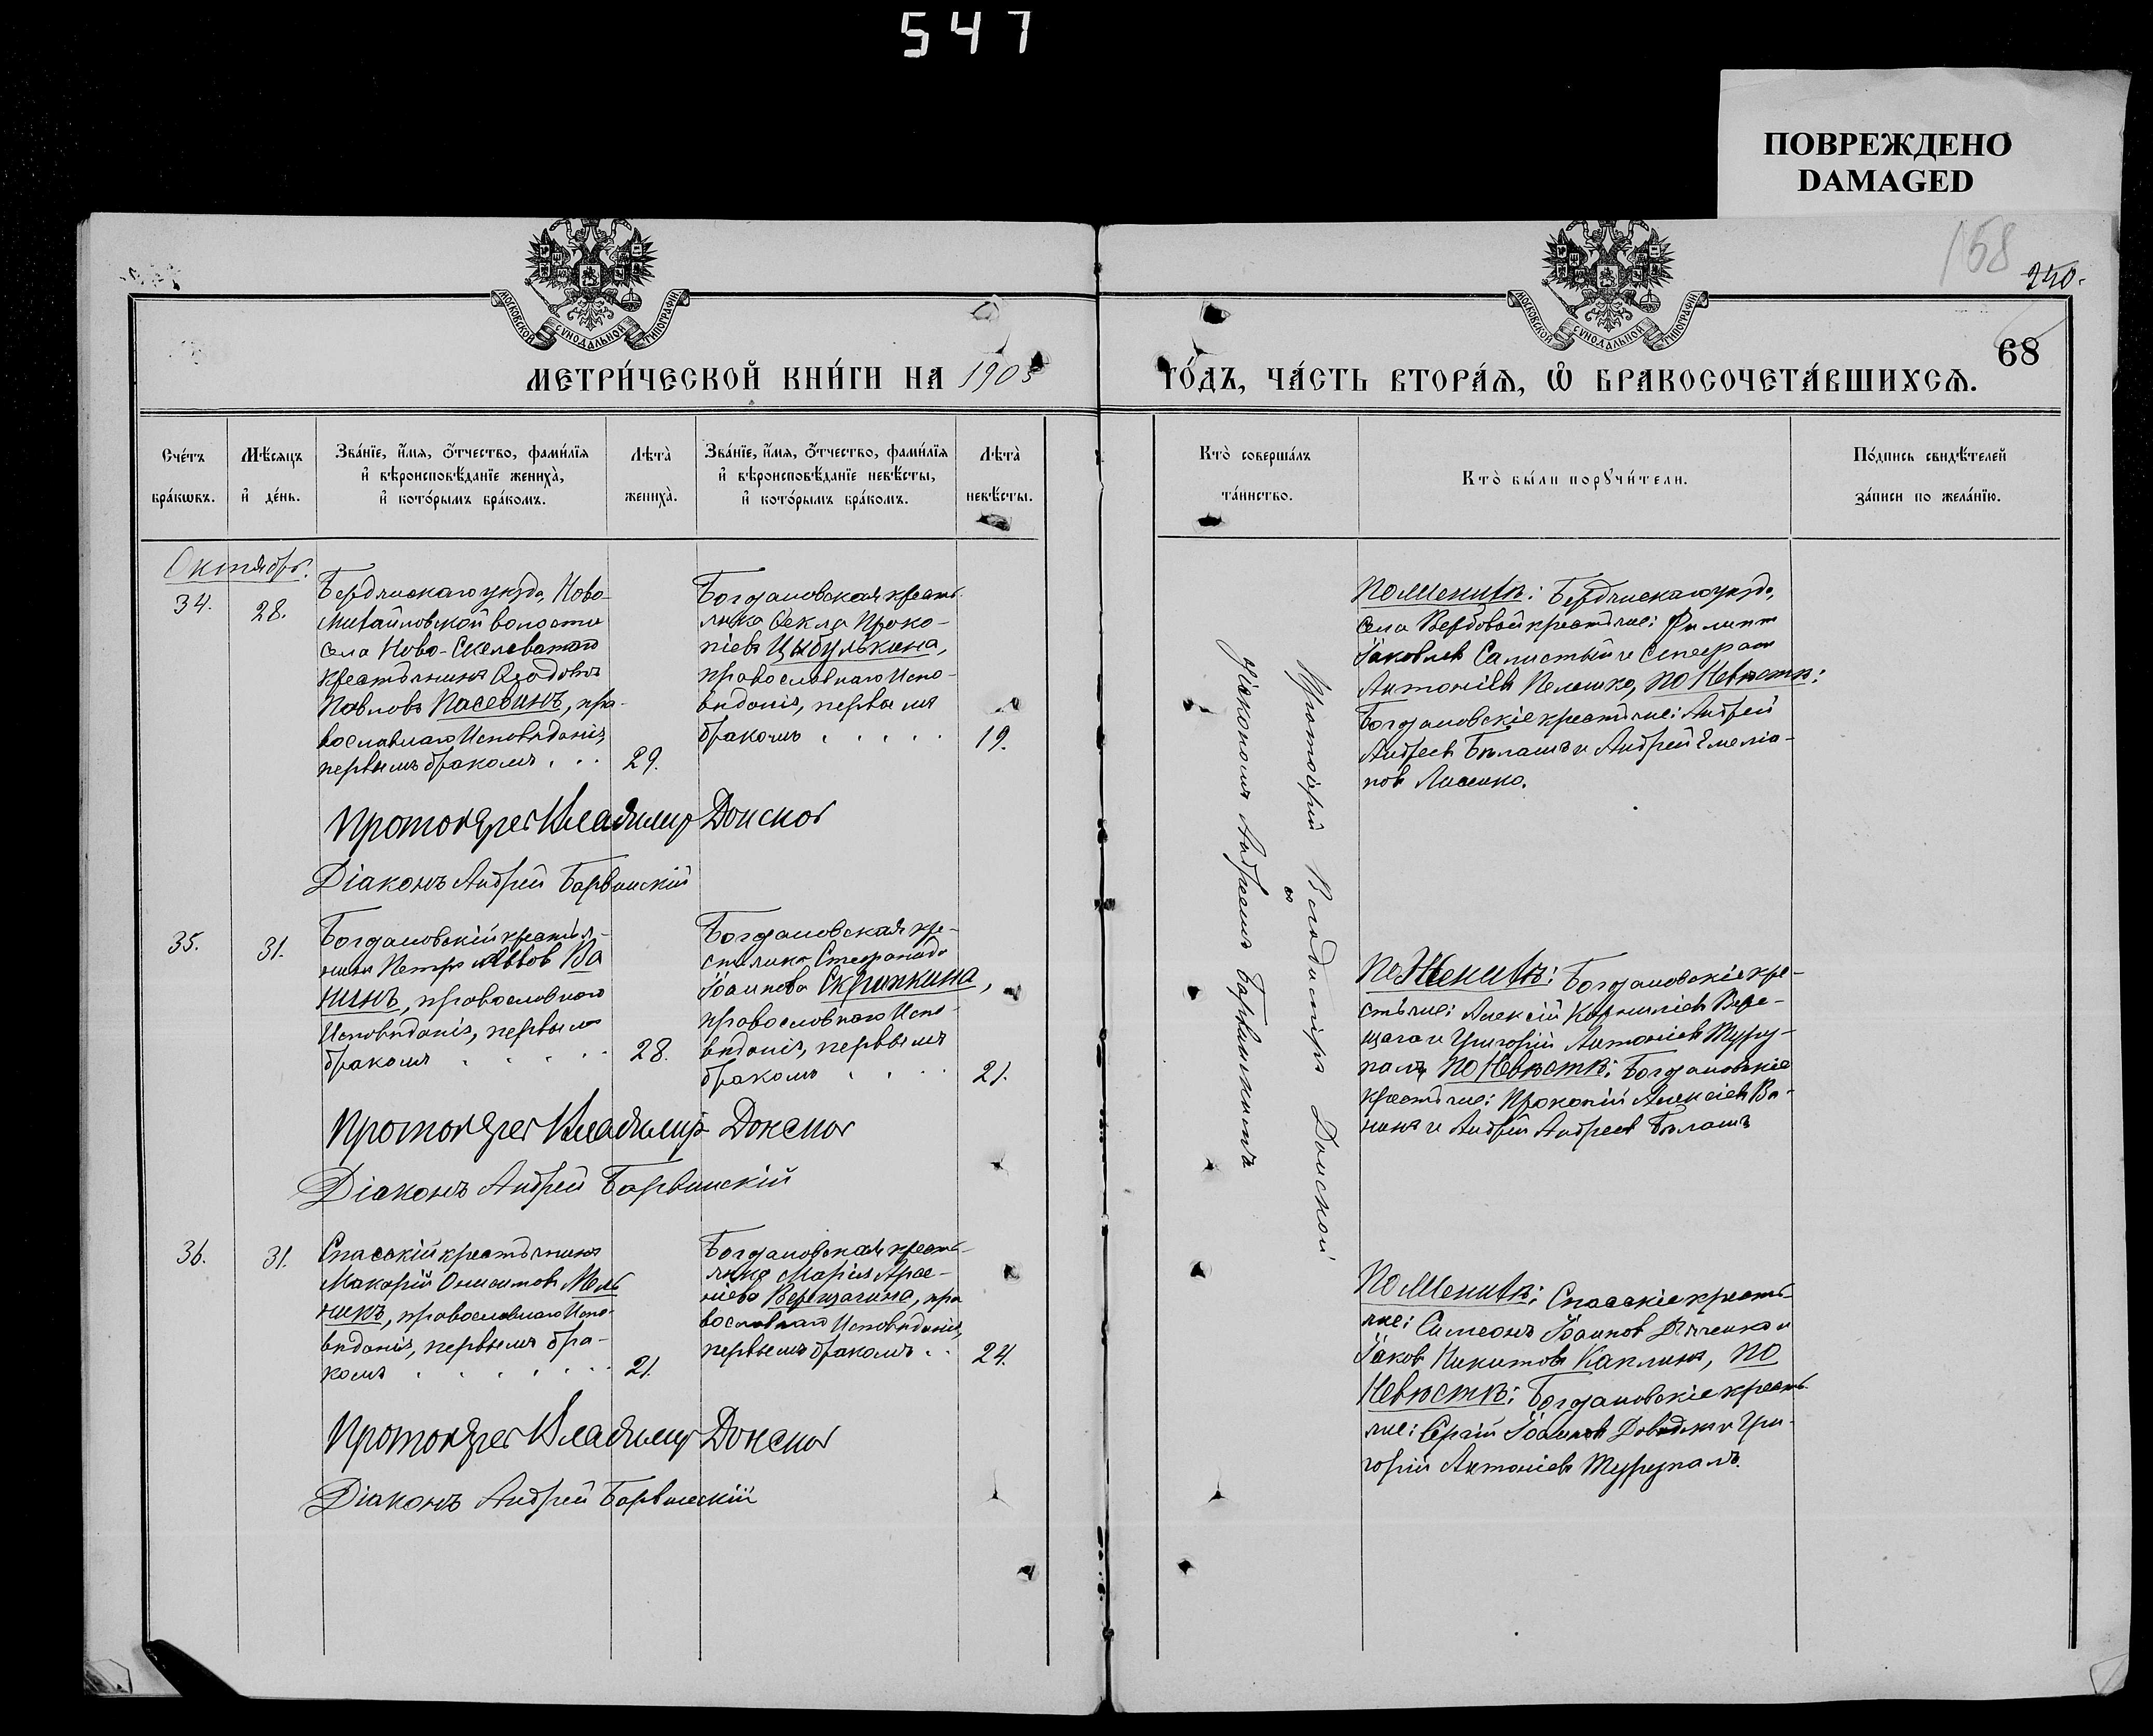 547
ПОВРЕЖДЕНО
DAMAGED
168
240.
68
МОСКОВСКОЙ СѴНОДАЛЬНОЙ ТИПОГРАФІИ
МОСКОВСКОЙ СѴНОДАЛЬНОЙ ТИПОГРАФІИ
МЕТРИ́ЧЕСКОЙ КНИ́ГИ НА 1905 ГО́ДЪ, ЧА́СТЬ ВТОРА́Ѧ, Ѡ БРАКОСОЧЕТА́ВШИХСѦ.
Сче́тъ
бра́кѡвъ.
Мѣ́сяцъ
и де́нь.
Зва́нїе, и́мя, ѻ́тчество, фами́лїя
и вѣроисповѣ́данїе жениха̀,
и кото́рымъ бра́комъ.
Лѣта̀
жениха̀.
Зва́нїе, и́мя, ѻ́тчество, фами́лїя
и вѣроисповѣ́данїе невѣ́сты,
и кото́рымъ бра́комъ.
Лѣта̀
невѣ́сты.
Кто̀ соверша́лъ
та́инство.
Кто̀ бы́ли порꙋчи́тели.
По́дпись свидѣ́телей
за́писи по жела́нїю.
Октябрь.
34.
28.
Бердянскаго уѣзда, Ново-
Михайловской волости
села Ново-
крестьянинъ
Павловъ Пасевинъ, пра-
вославнаго Исповѣданія,
первымъ бракомъ . . .
29.
Богдановская кресть-
янка Ѳекла Проко-
піева Цыбулькина,
православнаго Испо-
вѣданія, первымъ
бракомъ . . . . .
19.
По Женихѣ: Бердянскаго уѣзда,
села Вербовой крестьяне: Филиппъ
Іаковлевъ и Стефанъ
Антоніевъ Пелешко, по Невѣстѣ:
Богдановскіе крестьяне: Андрей
Андреевъ Бѣлашъ и Андрей Емелиа-
новъ Лисенко.
Протоіерей Владиміръ Донской
Діаконъ Андрей Барвинскій
35.
31.
Богдановскій крестья-
нинъ Петръ Ва
нинъ, православнаго
Исповѣданія, первымъ
бракомъ . . . . .
28.
Богдановская кре-
стьянка Стефанида
Іоаннова Скрипкина,
православнаго Испо-
вѣданія, первымъ
бракомъ . . . .
21.
По Женихѣ: Богдановскіе кре-
стьяне: Алексій Корниліевъ Вере-
щага и Григорій Антоніевъ Туру-
палъ, по Невѣстѣ: Богдановскіе
крестьяне: Прокопій Алексіевъ Ва-
нинъ и Андрей Андреевъ Бѣлашъ
Протоіерей Владиміръ Донской
Діаконъ Андрей Барвинскій
36.
31.
Спасскій крестьянинъ
Макарій Онисимовъ Мель
никъ, православнаго Испо-
вѣданія, первымъ бра-
комъ . . . . . .
21.
Богдановская кресть-
янка Марія Арсе-
ніева Верещагина, пра
вославнаго Исповѣданія,
первымъ бракомъ . .
24.
По Женихѣ: Спасскіе кресть-
яне: Симеонъ Іоанновъ Дяченко и
Іаковъ Никитовъ Каплинъ, по
Невѣстѣ: Богдановскіе кресть-
яне: Сергій Іоанновъ и Гри-
горій Антоніевъ Турупалъ.
Протоіерей Владиміръ Донской
Діаконъ Андрей Барвинскій
Протоіерей Владиміръ Донской
съ
діакономъ Андреемъ Барвинскимъ